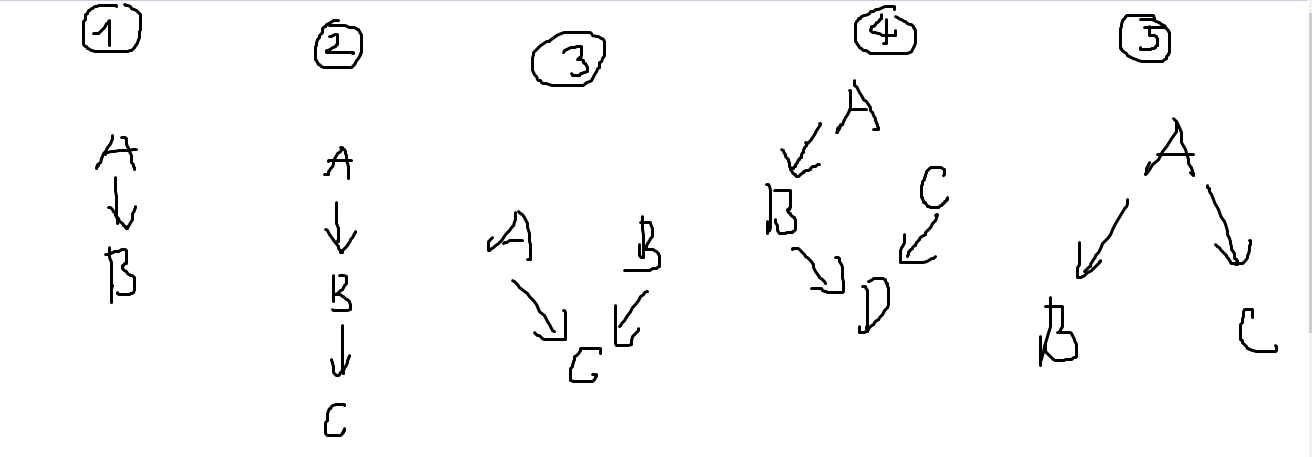 1
A
B
2
A
B
C
3
A B
C
4
A
B C
D
5
A
B C